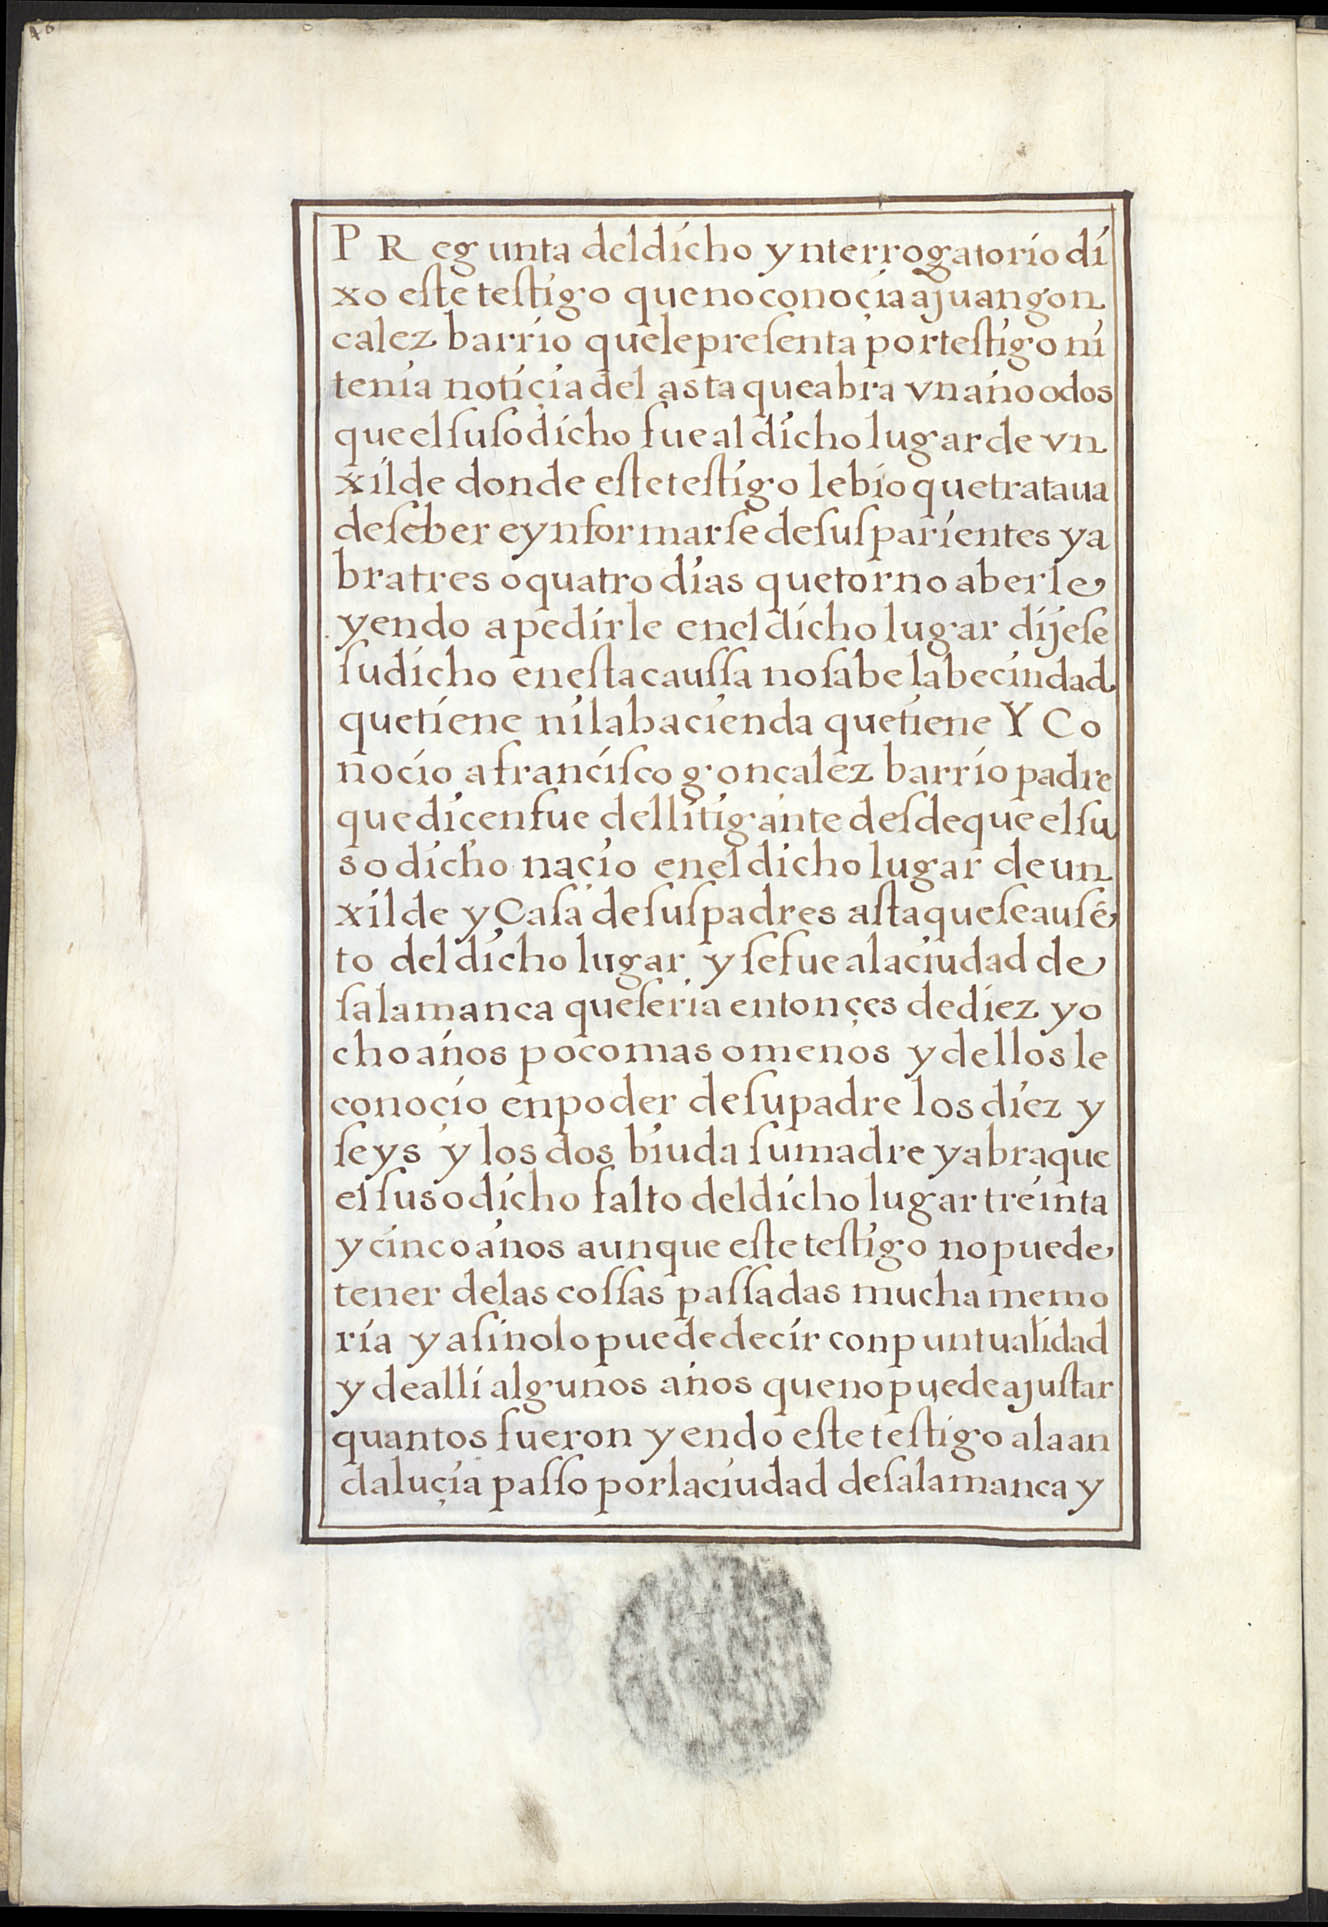 46
PRegunta del dicho ynterrogatorio di
xo este testigo que no conoçia a juan gon
calez barrio que le presenta por testigo ni
tenia notiçia del asta que abra vn año o dos
que el suso dicho fue al dicho lugar de vn
xilde donde este testigo le bio que trataua
de seber e ynformarse de sus parientes y a
bra tres o quatro dias que torno a berle
yendo a pedirle en el dicho lugar dijese
su dicho en esta caussa no sabe la becindad
que tiene ni la hacienda que tiene Y Co
noçio a francisco gonçalez barrio padre
que diçen fue del litigante desde que el su
so dicho naçio en el dicho lugar de un
xilde y Casa de sus padres asta que se ausẽ
to del dicho lugar y se fue a la ciudad de
salamanca que seria entonçes de diez y o
cho años poco mas o menos y dellos le
conoçio en poder de su padre los diez y
seys y los dos biuda su madre y abra que
el suso dicho falto del dicho lugar treinta
y cinco años aunque este testigo no puede
tener de las cossas passadas mucha memo
ria y asi no lo puede decir con puntualidad
y de alli algunos años que no puede ajustar
quantos fueron yendo este testigo a la an
daluçia passo por la ciudad de salamanca y